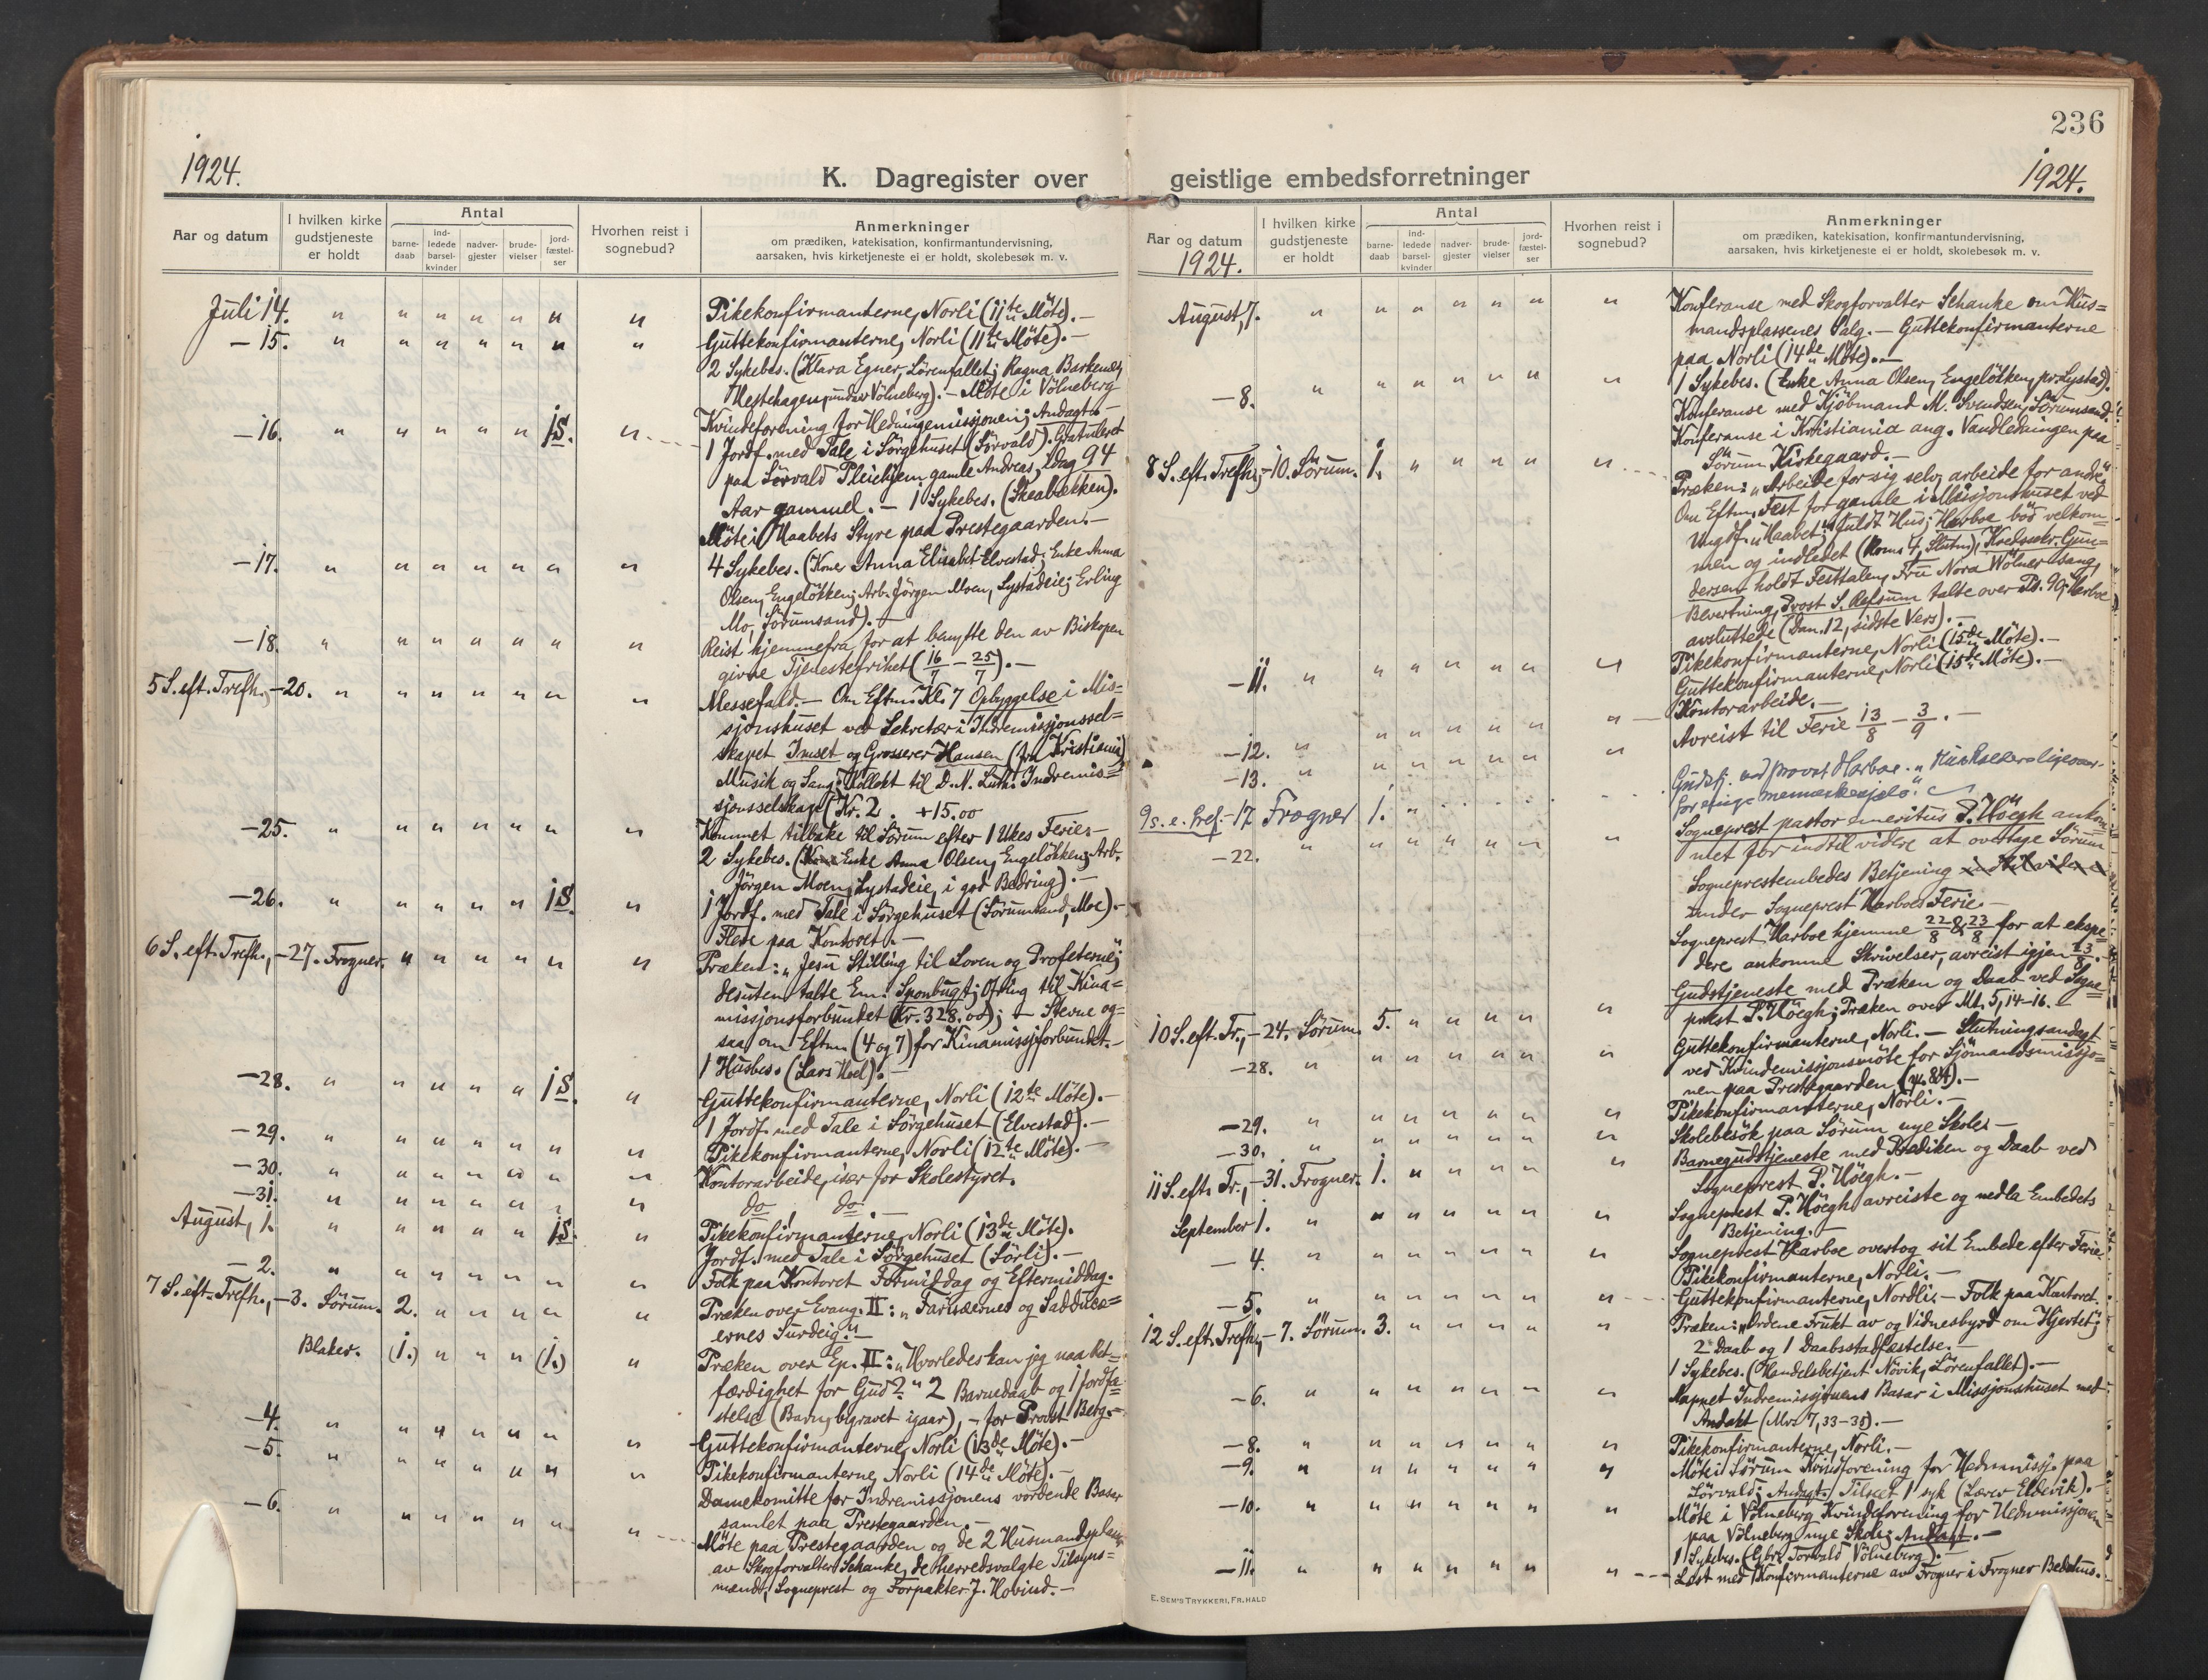 236
1924.
K. Dagregister over geistlige embedsforretninger
1924.
Aar og datum
I hvilken kirke gudstjeneste er holdt
Antal
barne-daab
ind-ledede barsel-kvinder
nadver-gjester
brude-vielser
jord-fæstel-ser
Hvorhen reist i sognebud?
Anmerkninger
om prædiken, katekisation, konfirmantundervisning,
aarsaken, hvis kirketjeneste ei er holdt, skolebesøk m. v.
Juli 14. " " " " " " " Pikekonfirmanterne, Norli (11te Möte). -
- 15. " " " " " " " Guttekonfirmanterne, Norli (11te Möte). -
2 Sykebes. (Klara Egner, Sörenfallet; Ragna Barkenes,
Hestehagen, under Völneberg). - Möte i Völneberg
Kvindeforening for Hedningemissjonen; Andagt. -
- 16. " " " " " 1 S. " 1 Jordf. med Tale i Sörgehuset (Sörvald). Gratuleret
paa Sörvald Pleiehjem gamle Andreas, idag 94
Aar gammel. - 1 Sykebes. (Skeabækken).
Möte i Haabets Styre paa Prestegaarden. -
- 17. " " " " " " " 4 Sykebes. (Kone Anna Elisabet Elvestad; Enke Anna
Olsen, Engelökken; Arb. Jörgen Moen, Lystadeie; Erling
Mo, Sörumsand). -
- 18. " " " " " " " Reist hjemmefra for at benytte den av Biskopen
givne Tjenestefrihet (16/7 - 25/7). -
5 S. eft. Trefh., - 20. " " " " " " " Messefald. - Om Eftm. Kl. 7 Opbyggelse i Mis=
sjonshuset ved Sekretær i Indremissjonssel=
skapet Imset og Grosserer Hansen (fra Kristiania)
Musik og Sang; Kollekt til D. N. Luth. Indremis=
sjonsselskap (Kr. 2. + 15.00
- 25. " " " " " " " Kommet tilbake til Sörum efter 1 Ukes Ferie. -
2 Sykebes. (Enke Anna Olsen, Engelökken; Arb.
Jörgen Moen, Lystadeie, i god Bedring). -
- 26. " " " " " 1 S. " 1 Jordf. med Tale i Sörgehuset (Sörumsand, Moe). -
Flere paa Kontoret. -
6 S. eft. Trefh., - 27. Frogner. " " " " " " Præken: "Jesu Stilling til Loven og Profeterne";
desuten talte Em. Sponbugt; Ofring til Kina=
missjonsforbundet (Kr. 328.00); - Stevne og=
saa om Eftm. (4 og 7) for Kinamissjforbundet. -
1 Husbes. (Lars Hoel). -
- 28. " " " " " 1 S. " Guttekonfirmanterne, Norli (12te Möte). -
1 Jordf. med Tale i Sörgehuset (Elvestad). -
- 29. " " " " " " " Pikekonfirmanterne, Norli (12te Möte). -
- 30. " " " " " " " Kontorarbeide, især for Skolestyret.
- 31. " " " " " " " do do. -
August, 1. " " " " " 1 S. " Pikekonfirmanterne, Norli (13de Möte).
Jordf. med Tale i Sörgehuset (Sörli). -
- 2. " " " " " " " Folk paa Kontoret Formiddag og Eftermiddag.
7 S. eft. Trefh., - 3. Sörum. 2. " " " " " Præken over Evang. II: "Farisæernes og Saddücæ=
ernes Surdeig." -
Blaker. (1.) " " " (1.) " Præken over Ep. II: "Hvorledes kan jeg naa Ret=
færdighet for Gud?" 2 Barnedaab og 1 Jordfæ=
stelse (Barn, begravet igaar), - for Provst Berg. -
- 4. " " " " " " " Guttekonfirmanterne, Norli (13de Möte). -
- 5. " " " " " " " Pikekonfirmanterne, Norli (14de Möte). -
Damekomitte for Indremissjonens vordende Basar
samlet paa Prestegaarden. -
- 6. " " " " " " " Möte paa Prestegaarden og de 2 Husmandsplasse
av Skogforvalter Schanke, de herredsvalgte Tilsyns=
mænd, Sogneprest og Forpakter J. Hovind. -
Aar og datum
1924.
I hvilken kirke gudstjeneste er holdt
Antal
barne-daab
ind-ledede barsel-kvinder
nadver-gjester
brude-vielser
jord-fæstel-ser
Hvorhen reist i sognebud?
Anmerkninger
om prædiken, katekisation, konfirmantundervisning,
aarsaken, hvis kirketjeneste ei er holdt, skolebesøk m. v.
August, 7. " " " " " " " Konferanse med Skogforvalter Schanke om Hus=
mandsplassenes Salg. - Guttekonfirmanterne
paa Norli (14de Möte). -
- 8. " " " " " " " 1 Sykebes. (Enke Anna Olsen, Engelökken, pr. Lystad).
Konferanse med Kjöbmand M. Svendsen, Sörumsand.
Konferanse i Kristiania ang. Vandledningen paa
Sörum Kirkegaard. -
8 S. eft. Trefh., - 10. Sörum. 1. " " " " " Præken: "Arbeide for sig selv, arbeide for andre"
Om Eftm. Fest for gamle i Missjonshuset ved
Ungdf. "Haabet"; fuldt Hus; Harboe bös velkom=
men og indledet (Rom. 4, Slutn.), Kretssekr. Gun=
dersen holdt Festtalen, Fru Nora Wölner sang,
Bevertning, Provst S. Refsum talte over Ps. 90; Harboe
avsluttede (Dan. 12, sidste Vers). -
- 11. " " " " " " " Pikekonfirmanterne, Norli (15de Möte). -
Guttekonfirmanterne, Norli (15de Möte). -
- 12. " " " " " " " Kontorarbeide. -
- 13. " " " " " " " Avreist til Ferie 13/8 - 3/9. -
9 s. e. tref. - 17 Frogner 1. " Gudstj. ved provst Harboe.
- 22. " " " " " " " Sogneprest pastor emeritus P. Höegh ankom=
met for indtil videre at overtage Sörum
Sogneprestembedes Betjening
under Sogneprest Harboes Ferie. -
Sogneprest Harboe hjemme 22/8 & 23/8 for at ekspe=
dere ankomne Skrivelser, avreist igjen 23/8. -
10 S. eft. Tr., - 24. Sörum. 5. " " " " " Gudstjeneste med Præken og Daab ved Sogne=
prest P. Höegh; Præken over Mt. 5, 14-16.
- 28. " " " " " " " Guttekonfirmanterne, Norli. - Slutningsandagt
ved Kvindemissjonsmöte for Sjömandsmissjo=
nen paa Prestegaarden (ps. 84). -
- 29. " " " " " " " Pikekonfirmanterne, Norli. -
- 30. " " " " " " " Skolebesök paa Sörum nye Skole. -
11 S. eft. Tr., - 31. Frogner. 1. " " " " " Barnegudstjeneste med Prædiken og Daab ved
Sogneprest P. Höegh. -
September 1. " " " " " " " Sogneprest P. Höegh avreiste og nedla Embedets
Betjening. -
- 4. " " " " " " " Sogneprest Harboe overtog sit Embede efter Ferie.
Pikekonfirmanterne, Norli. -
- 5. " " " " " " " Guttekonfirmanterne, Nordli. - Folk paa Kontoret.
12 S. eft. Trefh., - 7. Sörum. 3. " " " " " Præken: "Ordene Frukt av og Vidnesbyrd om Hjertet";
2 Daab og 1 Daabsstadfæstelse. -
1 Sykebes. (Handelsbetjent Növik, Sörenfallet). -
- 6. " " " " " " " Aapnet Indremissjonens Basar i Missjonshuset med
Andakt (Mr. 7, 33-35). -
- 8. " " " " " " " Pikekonfirmanterne, Norli. -
- 9. " " " " " " " Möte i Sörum Kvindforening for Hednmissj. paa
Sörvald; Andagt. Tilset 1 syk (Lærer Eldevik). -
- 10. " " " " " " " Möte i Völneberg Kvindeforening for Hednmissjonen
paa Völneberg nye Skole; Andagt. -
1 Sykebes. (Gbr. Torvald Völneberg). -
- 11. " " " " " " " Læst med Konfirmanterne av Frogner i Frogner Bedehus.
E. SEM'S TRYKKERI, FR.HALD